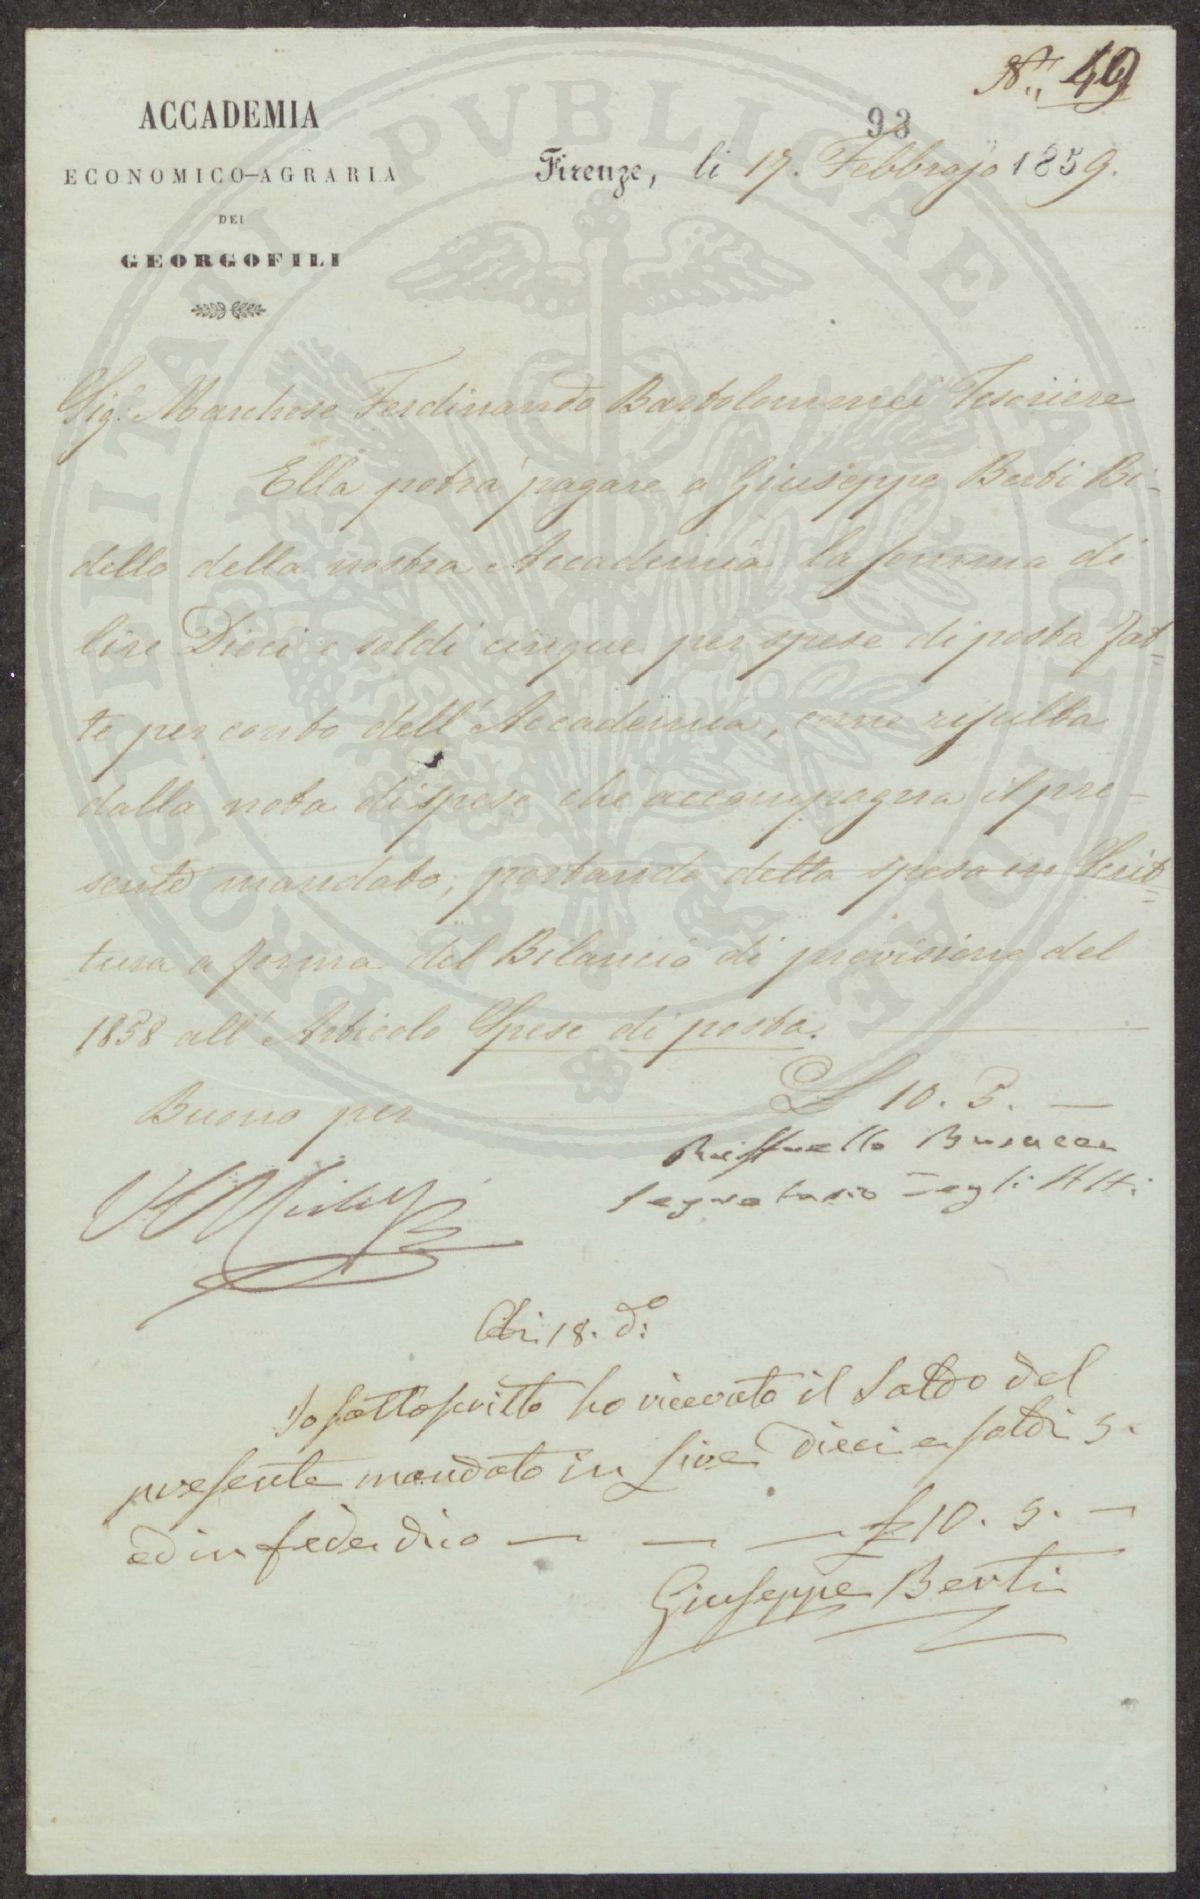 N.° 49
ACCADEMIA
ECONOMICO-AGRARIA
DEI
GEORGOFILI
93
Firenze, li 17. Febbrajo 1859.
PROSPERITATI PVBLICAE AVGENDAE
Sig.r Marchese Ferdinando Bartolommei Tesoriere
Ella potrà pagare a Giuseppe Berti Bi-
dello della nostra Accademia la somma di
lire Dieci e soldi cinque per spese di posta fat=
te per conto dell'Accademia, come resulta
dalla nota di spese che accompagna il pre-
sente mandato, portando detta spesa in Scrit=
tura a forma del Bilancio di previsione del
1858 all'Articolo Spese di posta.
Buono per £ 10. 5. —
Raffaello Busacca
Segretario degli Atti
Adì 18. d.o
Io sottoscritto ho ricevuto il Saldo del
presente mandato in Lire dieci e soldi 5.
ed in fede dico — — — £ 10. 5. —
Giuseppe Berti